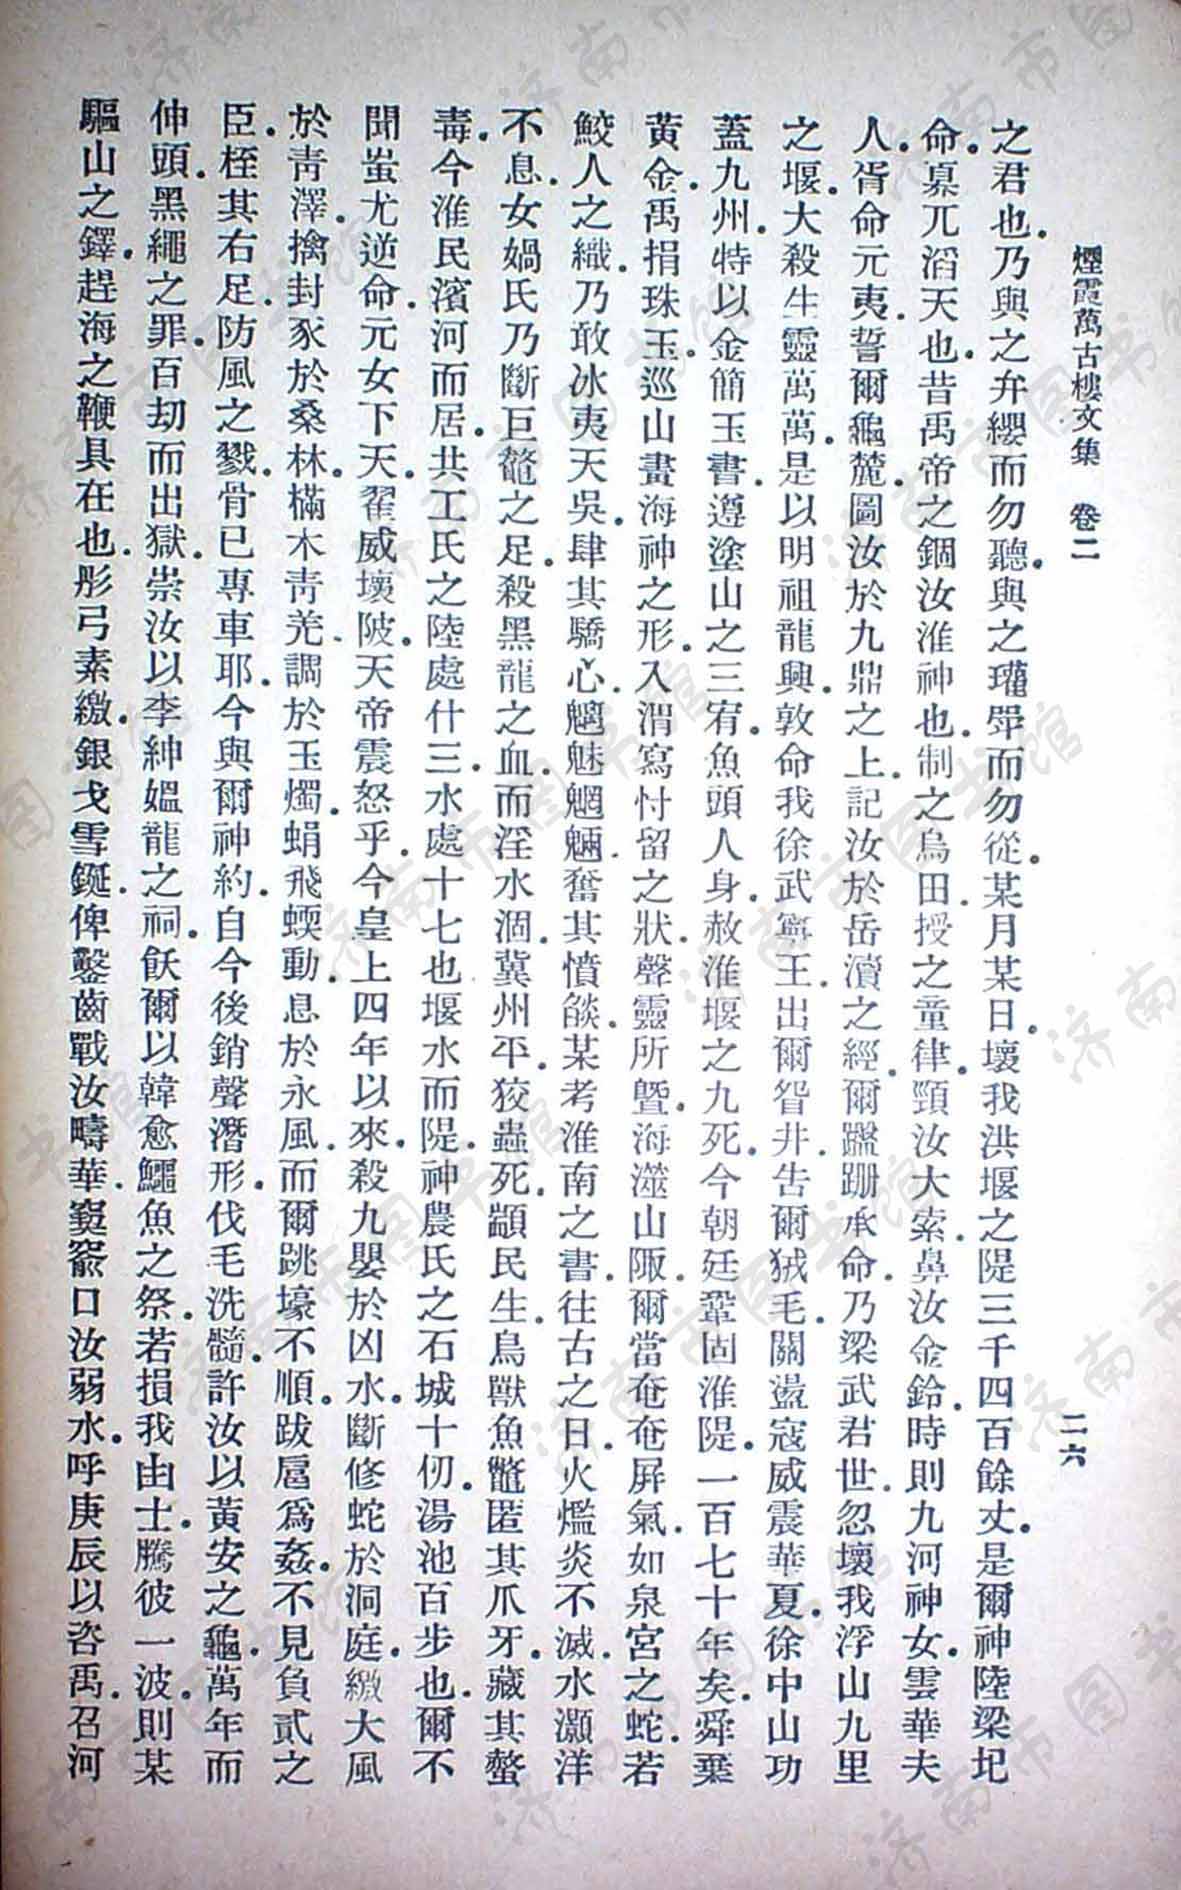 煙霞萬古樓文集 卷二 二六
之君也。乃與之弁纓而勿聽。與之瓘斝而勿從。某月某日。壞我洪堰之隄三千四百餘丈。是爾神陸梁圮
命。奡兀滔天也。昔禹帝之錮汝淮神也。制之烏田。授之童律。頸汝大索。鼻汝金鈴。時則九河神女。雲華夫
人。胥命元夷。誓爾龜麓。圖汝於九鼎之上。記汝於岳瀆之經。爾蹣跚承命。乃梁武君世。忽壞我浮山九里
之堰。大殺生靈萬萬。是以明祖龍興。敦命我徐武寧王。出爾眢井。告爾狨毛。關盪寇威震華夏。徐中山功
蓋九州。特以金簡玉書。遵塗山之三宥。魚頭人身。赦淮堰之九死。今朝廷鞏固淮隄。一百七十年矣。舜棄
黃金。禹捐珠玉。巡山畫海神之形。入渭寫忖留之狀。聲靈所曁。海澨山陬。爾當奄奄屏氣。如泉宮之蛇。若
鮫人之織。乃敢冰夷天吳。肆其驕心。魑魅魍魎。奮其憤燄。某考淮南之書。往古之日。火爁炎不滅。水灝洋
不息。女媧氏乃斷巨鼇之足。殺黑龍之血。而淫水涸。冀州平。狡蟲死。顓民生。鳥獸魚鼈。匿其爪牙。藏其螫
毒。今淮民濱河而居。共工氏之陸處什三。水處十七也。堰水而隄。神農氏之石城十仞。湯池百步也。爾不
聞蚩尤逆命。元女下天。翟威壞陂。天帝震怒乎。今皇上四年以來。殺九嬰於凶水。斷修蛇於洞庭。繳大風
於靑澤。擒封豕於桑林。槁木靑羌。調於玉燭。蜎飛蝡動。息於永風。而爾跳壕不順。跋扈爲姦。不見負貳之
臣。桎其右足。防風之戮。骨已專車耶。今與爾神約。自今後銷聲潛形。伐毛洗髓。許汝以黃安之龜。萬年而
仲頭。黑繩之罪。百刧而出獄。崇汝以李紳媼龍之祠。飫爾以韓愈鱷魚之祭。若損我由士。騰彼一波。則某
驅山之鐸。趕海之鞭具在也。彤弓素繳。銀戈雪鋋。俾鑿齒戰汝疇華。窫窳口汝弱水。呼庚辰以咨禹。召河